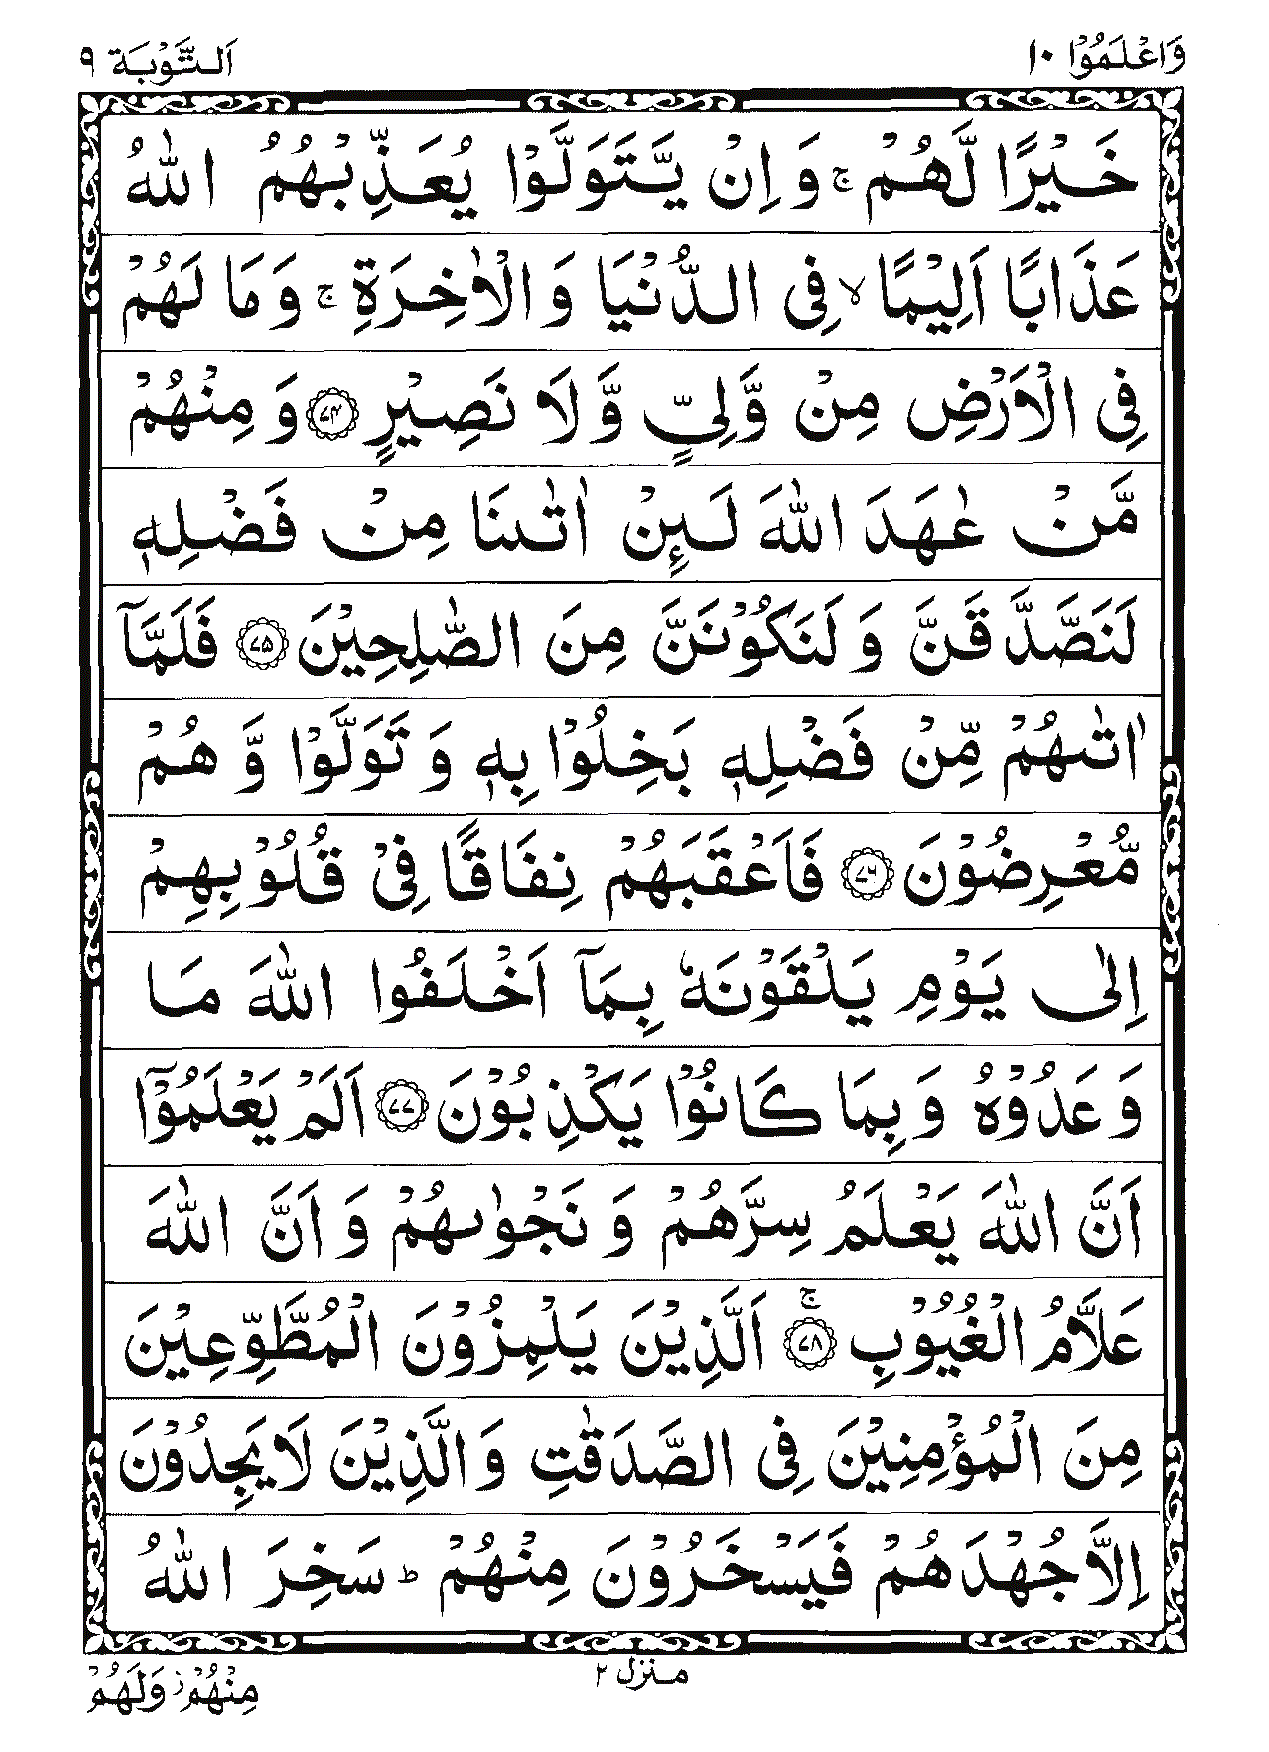 وَاعْلَمُوْۤا ١٠
اَلتَّوْبَة ٩
خَيْرًا لَّهُمْ ۚ وَ اِنْ يَّتَوَلَّوْا يُعَذِّبْهُمُ اللّٰهُ
عَذَابًا اَلِيْمًا ۙ فِى الدُّنْيَا وَ الْاٰخِرَةِ ۚ وَ مَا لَهُمْ
فِى الْاَرْضِ مِنْ وَّلِىٍّ وَّ لَا نَصِيْرٍ ﴿۷۴﴾ وَ مِنْهُمْ
مَّنْ عٰهَدَ اللّٰهَ لَئِنْ اٰتٰىنَا مِنْ فَضْلِهٖ
لَنَصَّدَّقَنَّ وَ لَنَكُوْنَنَّ مِنَ الصّٰلِحِيْنَ ﴿۷۵﴾ فَلَمَّاۤ
اٰتٰىهُمْ مِّنْ فَضْلِهٖ بَخِلُوْا بِهٖ وَ تَوَلَّوْا وَّ هُمْ
مُّعْرِضُوْنَ ﴿۷۶﴾ فَاَعْقَبَهُمْ نِفَاقًا فِىْ قُلُوْبِهِمْ
اِلٰى يَوْمِ يَلْقَوْنَهٗ بِمَاۤ اَخْلَفُوا اللّٰهَ مَا
وَعَدُوْهُ وَ بِمَا كَانُوْا يَكْذِبُوْنَ ﴿۷۷﴾ اَلَمْ يَعْلَمُوْۤا
اَنَّ اللّٰهَ يَعْلَمُ سِرَّهُمْ وَ نَجْوٰىهُمْ وَ اَنَّ اللّٰهَ
عَلَّامُ الْغُيُوْبِ ﴿۷۸﴾ ۚ اَلَّذِيْنَ يَلْمِزُوْنَ الْمُطَّوِّعِيْنَ
مِنَ الْمُؤْمِنِيْنَ فِى الصَّدَقٰتِ وَالَّذِيْنَ لَا يَجِدُوْنَ
اِلَّا جُهْدَهُمْ فَيَسْخَرُوْنَ مِنْهُمْ ؕ سَخِرَ اللّٰهُ
منزل ٢
مِنْهُمْ ؗ وَلَهُمْ